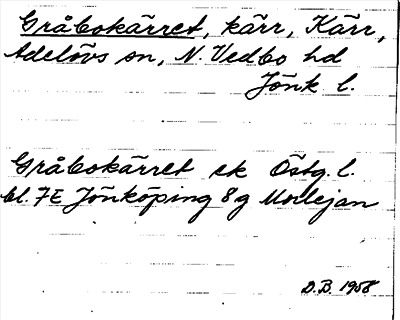 Gråbokärret, kärr, Kärr,
Adelövs sn, N. Vedbo hd
Jönk l.
Gråbokärret ek Östg. l.
bl. 7E Jönköping 8g Mollejan
D.B. 1958